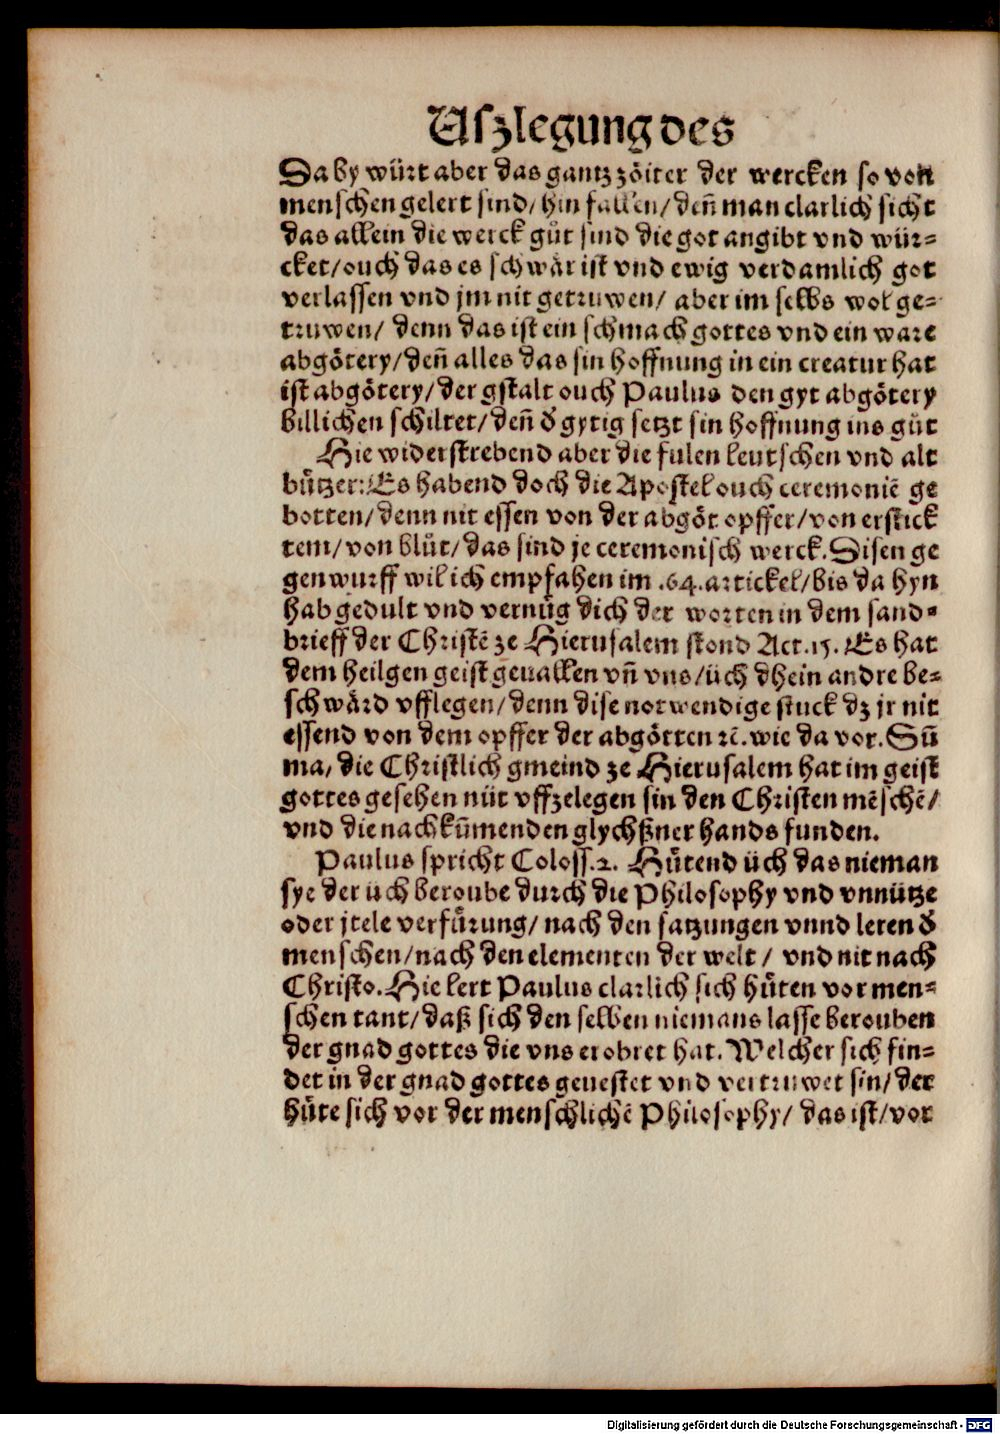 Uſzlegung des
Da by würt aber das gantz zöiter der wercken ſo von
menſchen gelert ſind/ hin fallen/ den̄ man clarlich ſicht
das allein die werck gůt ſind die got angibt vnd wür⸗
cket/ ouch das es ſchwär iſt vnd ewig verdamlich got
verlaſſen vnd jm nit getruwen/ aber im ſelbs wol ge⸗
truwen/ denn das iſt ein ſchmach gottes vnd ein ware
abgötery/ den̄ alles das ſin hoffnung in ein creatur hat
iſt abgötery/ der gſtalt ouch Paulus den gyt abgötery
billichen ſchiltet/ den̄ d̕ gytig ſetzt ſin hoffnung ins gůt
Hie widerſtrebend aber die fulen leutſchen vnd alt
bůtzer: Es habend doch die Apoſtel ouch ceremoniē ge
botten/ denn nit eſſen von der abgöt opffer/ von erſtick
tem/ von blůt/ das ſind je ceremoniſch werck. Diſen ge
genwurff wil ich empfahen im .64. artickel/ bis da hyn
hab gedult vnd vernüg dich der worten in dem ſand⸗
brieff der Chriſtē ze Hieruſalem ſtond Act. 15. Es hat
dem heilgen geiſt geuallen vn̄ vns/ üch dhein andre be⸗
ſchwärd vfflegen/ denn diſe notwendige ſtuck dz jr nit
eſſend von dem opffer der abgötten ꝛc̄. wie da vor. Sū
ma, die Chriſtlich gmeind ze Hieruſalem hat im geiſt
gottes geſehen nüt vffzelegen ſin den Chriſten mēſchē/
vnd die nachkūmenden glychßner hands funden.
Paulus ſpricht Coloſſ. 2. Hütend üch das nieman
ſye der üch beroube durch die Philoſophy vnd vnnütze
oder jtele verfůrung/ nach den ſatzungen vnnd leren d̕
menſchen/ nach den elementen der welt / vnd nit nach
Chriſto. Hie lert Paulus clarlich ſich hüten vor men⸗
ſchen tant/ daß ſich den ſelben niemans laſſe berouben
der gnad gottes die vns erobret hat. Welcher ſich fin⸗
det in der gnad gottes geueſtet vnd vertruwet ſin/ der
hüte ſich vor der menſchlichē Philoſophy/ das iſt/ vor
Digitalisierung gefördert durch die Deutsche Forschungsgemeinschaft - DFG